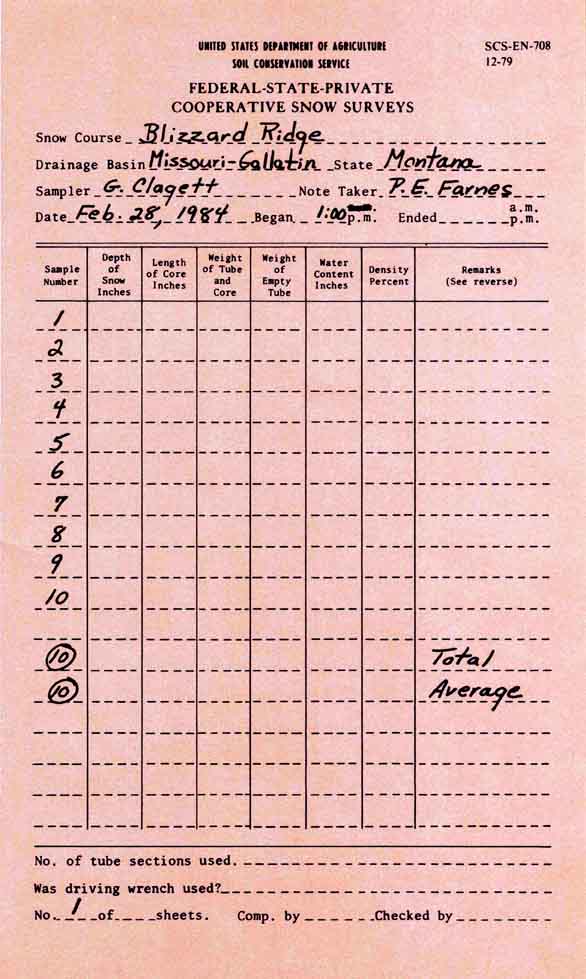 UNITED STATES DEPARTMENT OF AGRICULTURE SCS-EN-708
SOIL CONSERVATION SERVICE 12-79
FEDERAL-STATE-PRIVATE
COOPERATIVE SNOW SURVEYS
Snow Course Blizzard Ridge
Drainage Basin Missouri-Gallatin State Montana
Sampler G. Clagett Note Taker P. E. Farnes
Date Feb. 28, 1984 Began 1:00 p.m. Ended a.m. p.m.
Sample Number Depth of Snow Inches Length of Core Inches Weight of Tube and Core Weight of Empty Tube Water Content Inches Density Percent Remarks (See reverse)
1
2
3
4
5
6
7
8
9
10
10 Total
10 Average
No. of tube sections used.
Was driving wrench used?
No. 1 of sheets. Comp. by Checked by